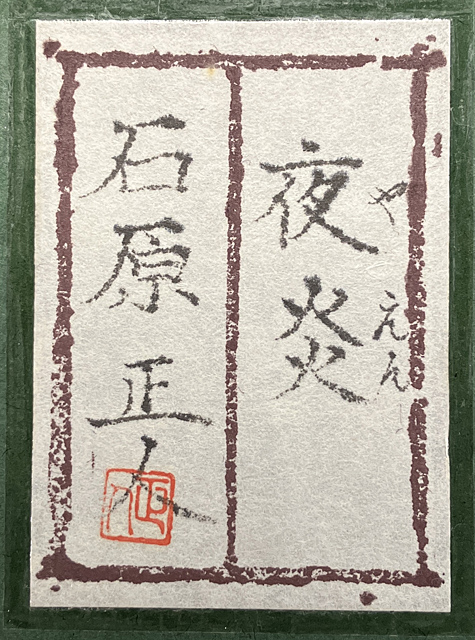 夜炎
やえん
石原正人